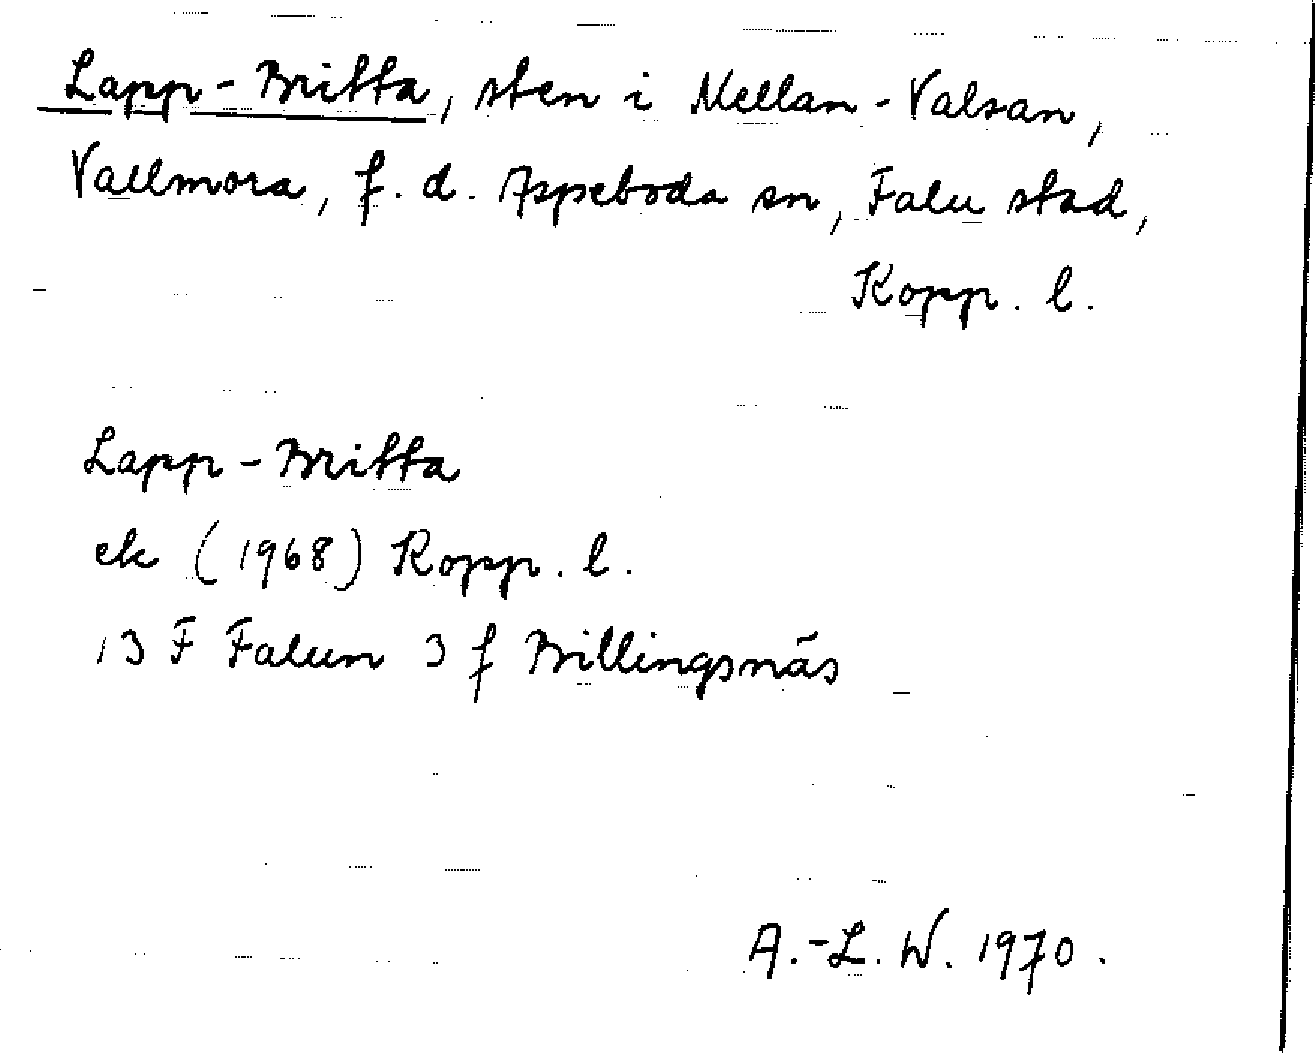 Lapp-Britta, sten i Mellan-Valsan,
Vallmora, f.d. Aspeboda sn, Falu stad,
Kopp. l.
Lapp-Britta
ek (1968) Kopp. l.
13 F Falun 3 f Billingsnäs
A.-L. W. 1970.